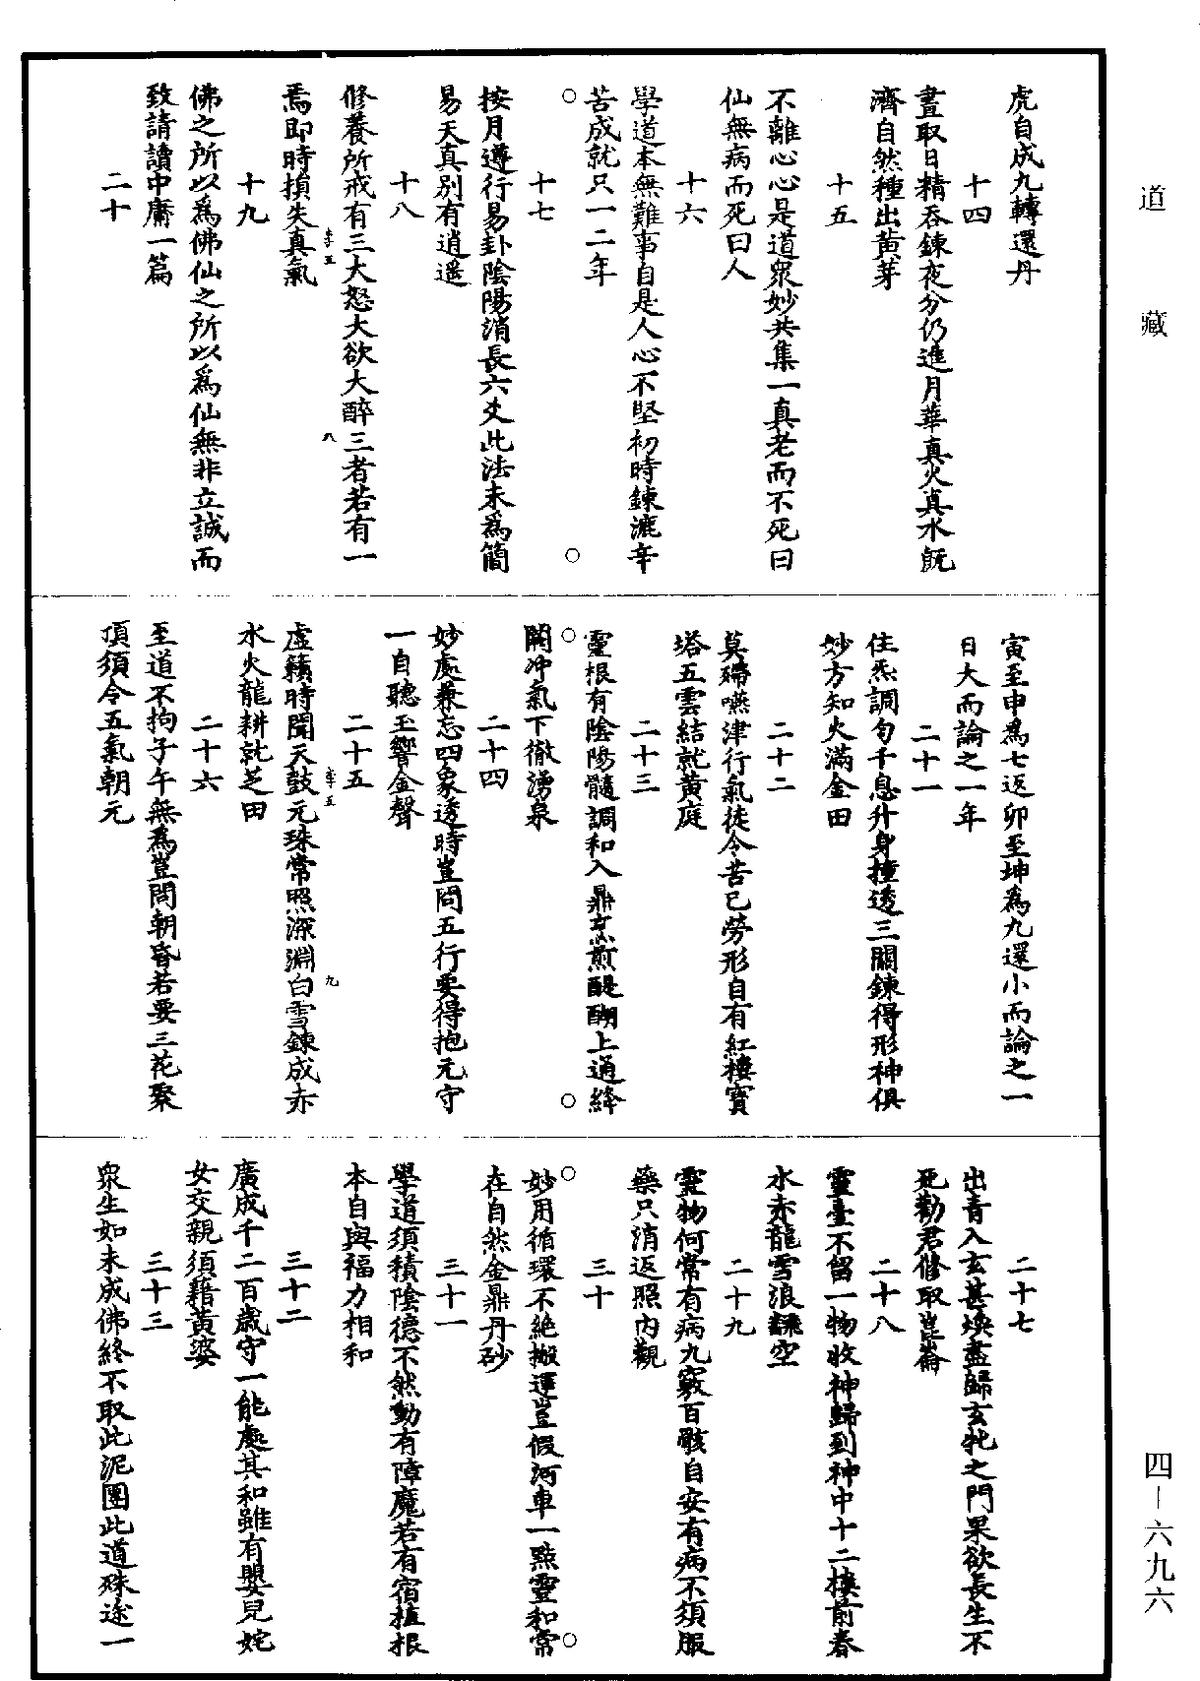 道藏
虎自成九轉還丹
十四
晝取日精吞鍊夜分仍進月華真火真水既
濟自然種出黃芽
十五
不離心心是道眾妙共集一真老而不死曰
仙無病而死曰人
十六
學道本無難事自是人心不堅初時鍊漉辛
苦成就只一二年
十七
按月遵行易卦陰陽消長六爻此法未為簡
易天真別有逍遥
十八
修養所戒有三大怒大欲大醉三者若有一
焉即時損失真氣
十九
佛之所以為佛仙之所以為仙無非立誠而
致請讀中庸一篇
二十
寅至申為七返卯至坤為九還小而論之一
日大而論之一年
二十一
住炁調勻千息升身撞透三關鍊得形神俱
妙方知火滿金田
二十二
莫殢嚥津行氣徒令苦已勞形自有紅樓寶
塔五雲結就黃庭
二十三
靈根有陰陽髓調和入鼎烹煎醍醐上通絳
闕冲氣下徹湧泉
二十四
妙處兼忘四象透時豈問五行要得抱元守
一自聽玉響金聲
二十五
虛籟時聞天鼓元珠常照深淵白雪鍊成赤
水火龍耕就芝田
二十六
至道不拘子午無為豈問朝昏若要三花聚
頂須令五氣朝元
二十七
出青入玄甚埉盡歸玄牝之門果欲長生不
死勸君修取崑崙
二十八
靈臺不留一物收神歸到神中十二樓前春
水赤龍雪浪飜空
二十九
靈物何常有病九竅百骸自安有病不須服
藥只消返照內觀
三十
妙用循環不絶搬運豈假河車一點靈和常
在自然金鼎丹砂
三十一
學道須積陰德不然動有障魔若有宿植根
本自與福力相和
三十二
廣成千二百歲守一能處其和雖有嬰兒姹
女交親須藉黃婆
三十三
眾生如未成佛終不取此泥團此道殊途一
四—六九六